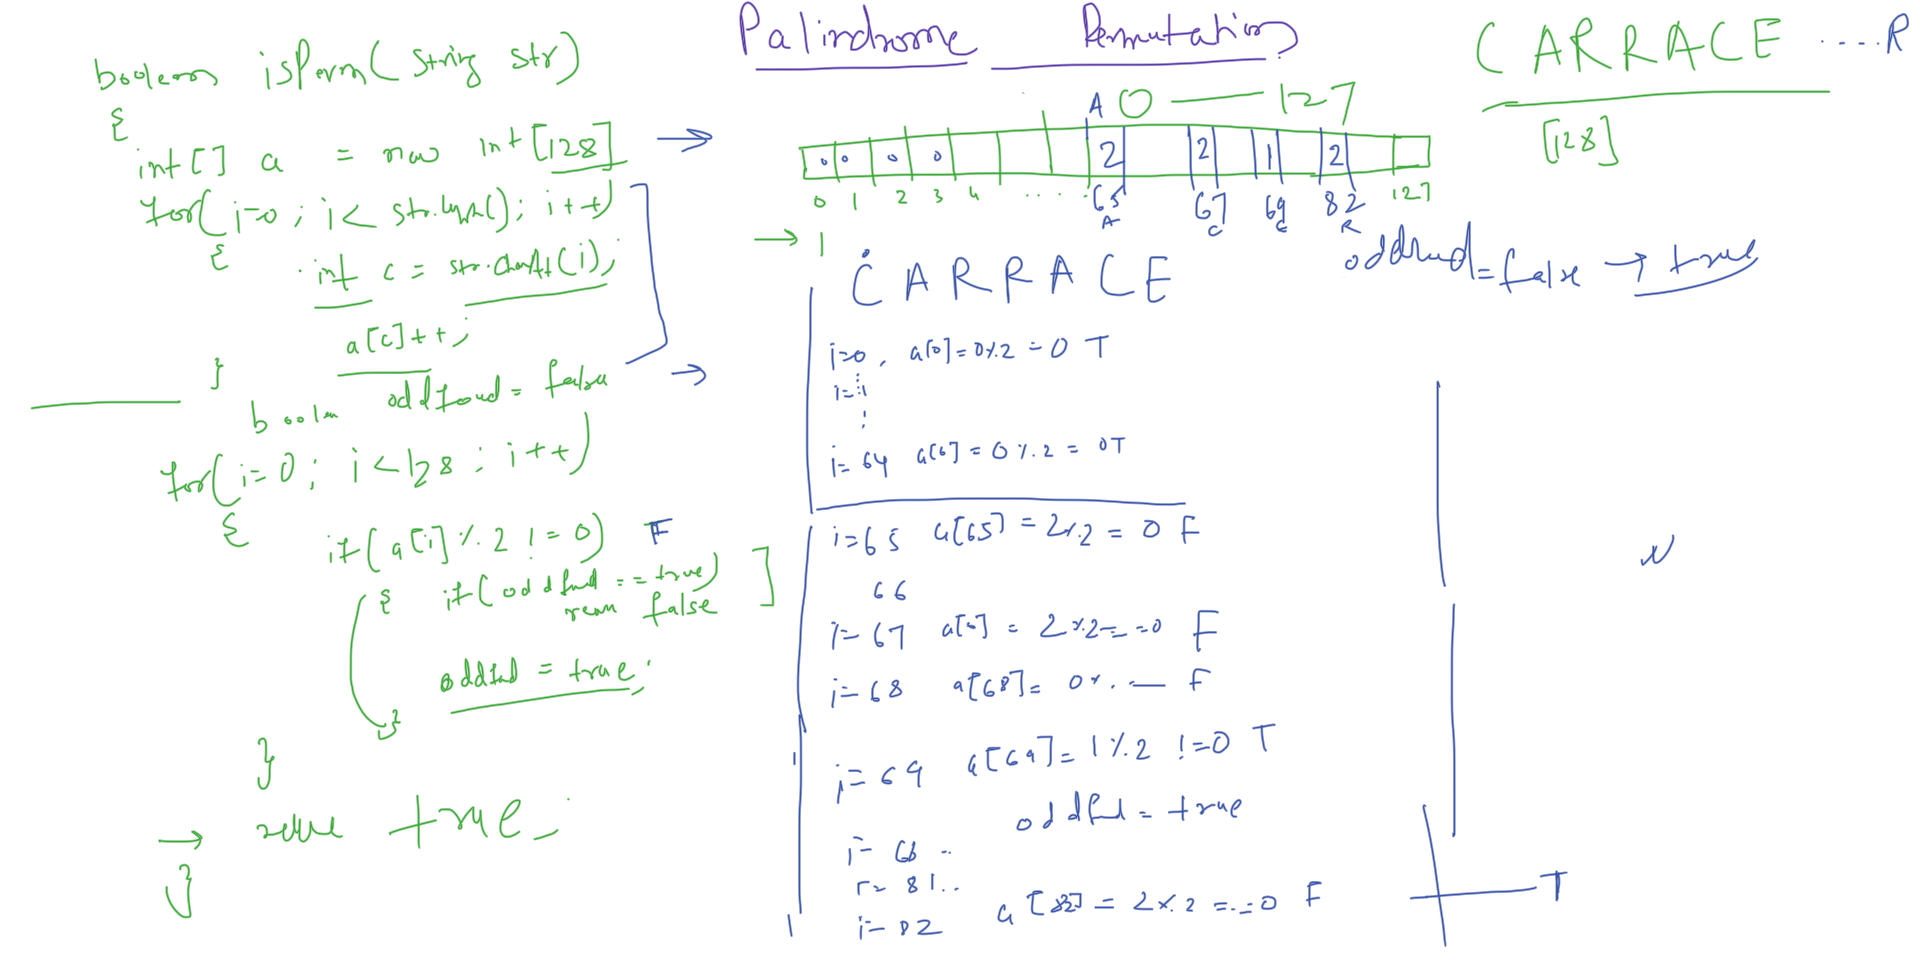 Palindrome Permutation
CARRACE ....R
[128]
boolean isPerm( String str)
{
int[] a = new int[128]
for( i=0 ; i< str.length(); i++)
{
int c = str.charAt(i);
a[c]++;
}
boolean oddfound = false
for( i=0 ; i<128 ; i++)
{
if( a[i] % 2 != 0) F
{ if( oddfnd == true)
return false
oddfnd = true;
}
}
return true;
}
A 0 — 127
0 0 0 0 2 2 1 2
0 1 2 3 4 .... 65 67 69 82 127
A C E R
1
CARRACE
oddfund = false → true
i=0, a[0]=0%2=0 T
i=1
i=64 a[6]=0%2= 0T
i=65 a[65]=2%2=0 F
66
i=67 a[6]=2%2==0 F
i=68 a[68]=0%.— F
i=69 a[69]=1%2 !=0 T
oddfd = true
i= 68 ..
i= 81..
i=82 a[82]=2%2==0 F
T
N